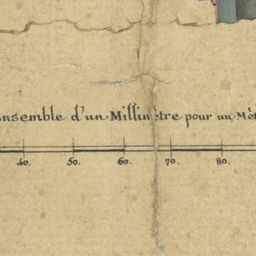 ensemble d'un Millimètre pour un Mèt
40. 50. 60. 70. 80.